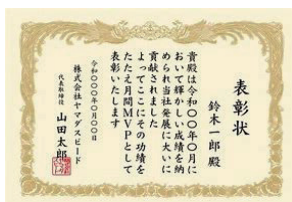 表彰状
鈴木一郎殿
貴殿は令和〇〇年〇月に
おいて輝かしい成績を納
められ当社発展に大いに
貢献されました
よってここにその功績を
たたえ月間MVPとして
表彰いたします
令和〇〇〇年〇月〇〇日
株式会社ヤマダスピード
代表取締役 山田太郎